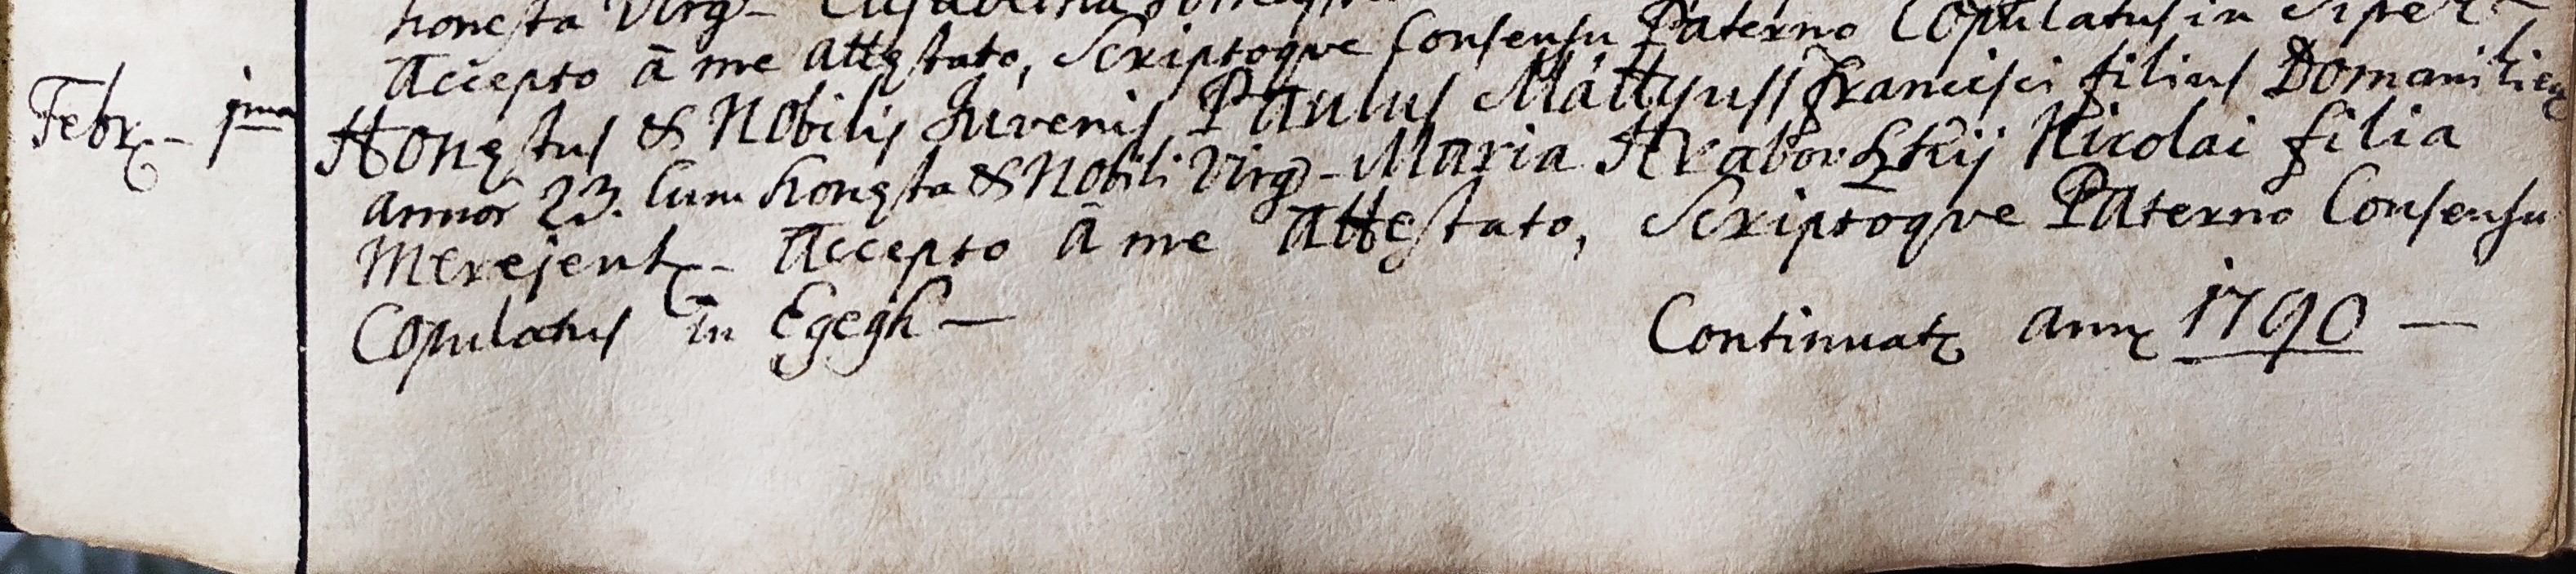 honesta Virg-
Accepto ā me attestato, Scriptoqve Consensu Paterno Copulatus in
Febr- 1ma Honestus & Nobilis Juvenis Paulus Mattyuss Francisci filius
annor̄ 23. Cum honesta & Nobili Virg- Maria Hrabovszkij Nicolai filia
Merejent- Accepto ā me Attestato, Scriptoqve Paterno Consensu
Copulatus in Egegh —
Continuat annq 1790 —